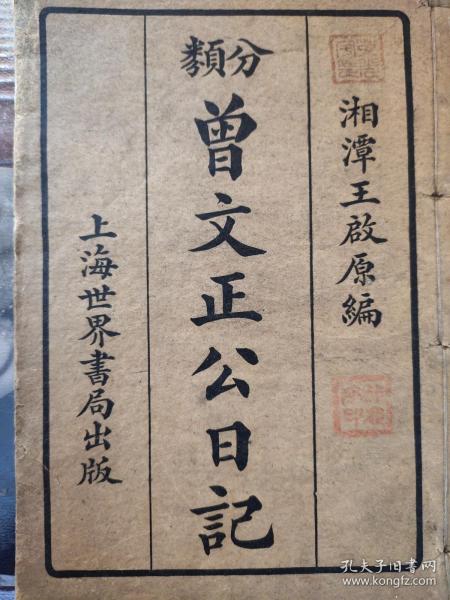 湘潭王啟原編
分類
曾文正公日記
上海世界書局出版
孔夫子旧书网
www.kongfz.com